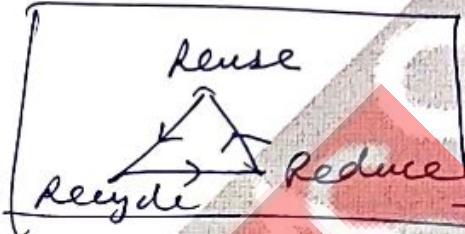 Reuse
Recycle Reduce